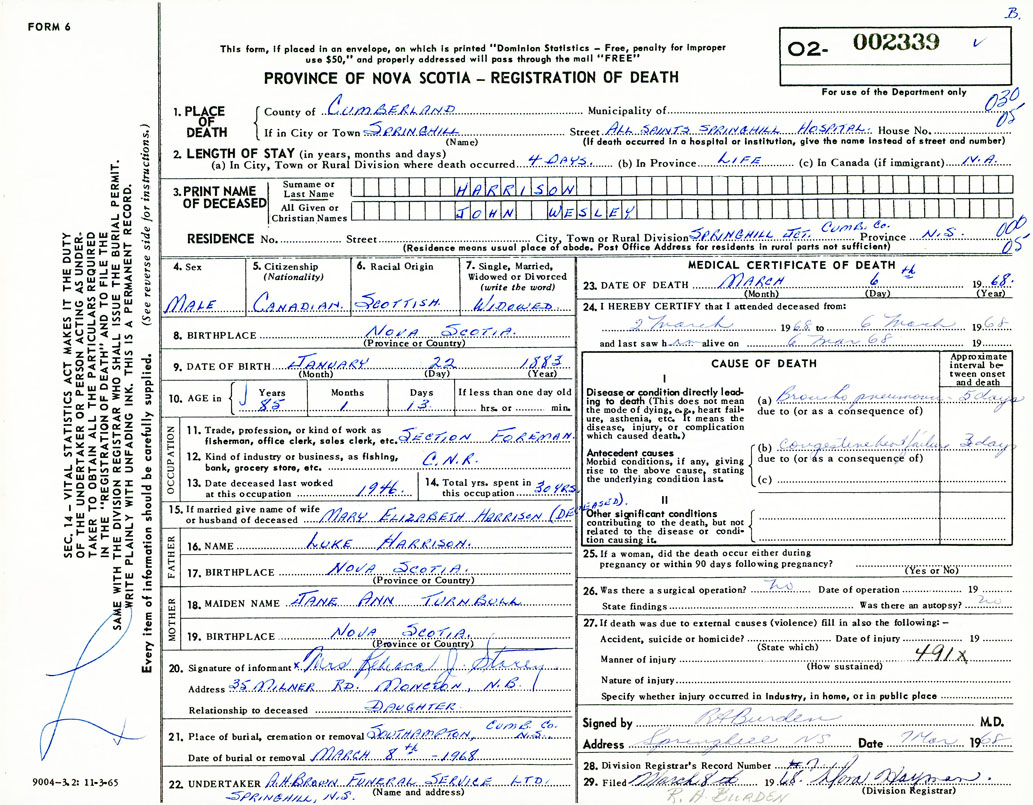 B.
FORM 6
This form, if placed in an envelope, on which is printed "Dominion Statistics – Free, penalty for improper
use $50," and properly addressed will pass through the mail "FREE"
PROVINCE OF NOVA SCOTIA – REGISTRATION OF DEATH
02- 002339
For use of the Department only
SEC. 14 – VITAL STATISTICS ACT MAKES IT THE DUTY
OF THE UNDERTAKER OR PERSON ACTING AS UNDER-
TAKER TO OBTAIN ALL THE PARTICULARS REQUIRED
IN THE "REGISTRATION OF DEATH" AND TO FILE THE
SAME WITH THE DIVISION REGISTRAR WHO SHALL ISSUE THE BURIAL PERMIT.
WRITE PLAINLY WITH UNFADING INK. THIS IS A PERMANENT RECORD.
Every item of information should be carefully supplied. (See reverse side for instructions.)
1. PLACE OF DEATH
County of CUMBERLAND Municipality of 030
If in City or Town SPRINGHILL Street ALL SAINTS SPRINGHILL HOSPITAL. House No. 05
(Name) (If death occurred in a hospital or institution, give the name instead of street and number)
2. LENGTH OF STAY (in years, months and days)
(a) In City, Town or Rural Division where death occurred 4 DAYS. (b) In Province LIFE (c) In Canada (if immigrant) N.A.
3. PRINT NAME OF DECEASED
Surname or Last Name HARRISON
All Given or Christian Names JOHN WESLEY
RESIDENCE No. Street City, Town or Rural Division SPRINGHILL JCT. CUMB. CO. Province N.S. 000
(Residence means usual place of abode. Post Office Address for residents in rural parts not sufficient) 05
4. Sex
MALE
5. Citizenship
(Nationality)
CANADIAN.
6. Racial Origin
SCOTTISH.
7. Single, Married,
Widowed or Divorced
(write the word)
WIDOWED.
8. BIRTHPLACE NOVA SCOTIA.
(Province or Country)
9. DATE OF BIRTH JANUARY 22 1883
(Month) (Day) (Year)
10. AGE in Years Months Days If less than one day old
85 1 13 hrs. or min.
OCCUPATION
11. Trade, profession, or kind of work as
fisherman, office clerk, sales clerk, etc. SECTION FOREMAN.
12. Kind of industry or business, as fishing,
bank, grocery store, etc. C.N.R.
13. Date deceased last worked
at this occupation 1946.
14. Total yrs. spent in
this occupation 30 YRS.
15. If married give name of wife
or husband of deceased MARY ELIZABETH HARRISON (DECEASED).
FATHER
16. NAME LUKE HARRISON.
17. BIRTHPLACE NOVA SCOTIA.
(Province or Country)
MOTHER
18. MAIDEN NAME JANE ANN TURNBULL
19. BIRTHPLACE NOVA SCOTIA.
(Province or Country)
20. Signature of informant x Mrs Rebecca J. Storey
Address 35 MILNER RD. MONCTON, N.B.
Relationship to deceased DAUGHTER
21. Place of burial, cremation or removal SOUTHAMPTON, CUMB. CO. N.S.
Date of burial or removal MARCH 8th - 1968
22. UNDERTAKER A.H. BROWN FUNERAL SERVICE LTD.
(Name and address)
SPRINGHILL, N.S.
9004–3.2: 11-3-65
MEDICAL CERTIFICATE OF DEATH
23. DATE OF DEATH MARCH 6th 1968.
(Month) (Day) (Year)
24. I HEREBY CERTIFY that I attended deceased from:
2 March 1968 to 6 March 1968
and last saw him alive on 6 Mar 68 19
CAUSE OF DEATH
Approximate interval between onset and death
I
Disease or condition directly lead-
ing to death (This does not mean
the mode of dying, e.g., heart fail-
ure, asthenia, etc. It means the
disease, injury, or complication
which caused death.)
(a) Broncho pneumonia 5 days
due to (or as a consequence of)
Antecedent causes
Morbid conditions, if any, giving
rise to the above cause, stating
the underlying condition last.
(b) congestive heart failure 3 days
due to (or as a consequence of)
(c)
II
Other significant conditions
contributing to the death, but not
related to the disease or condi-
tion causing it.
25. If a woman, did the death occur either during
pregnancy or within 90 days following pregnancy?
(Yes or No)
26. Was there a surgical operation? no Date of operation 19
State findings Was there an autopsy? no
27. If death was due to external causes (violence) fill in also the following: –
Accident, suicide or homicide? Date of injury 19
(State which)
Manner of injury 491x
(How sustained)
Nature of injury
Specify whether injury occurred in industry, in home, or in public place
Signed by RABurden M.D.
Address Springhill NS Date 7 Mar 1968
28. Division Registrar's Record Number #7
29. Filed March 8th 1968. Nora Hayman.
(Division Registrar)
R. A BURDEN